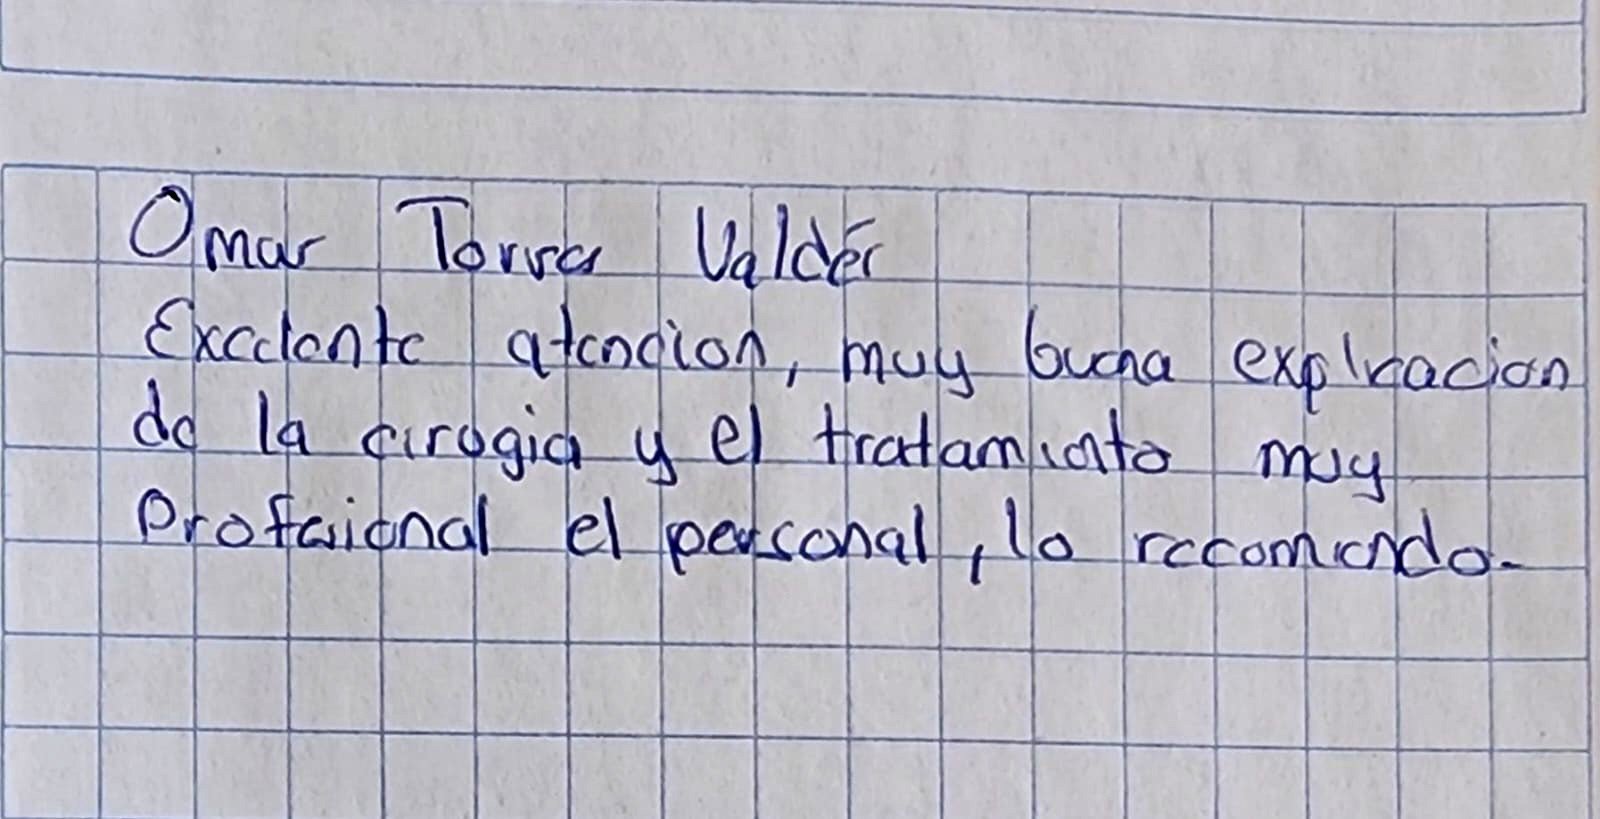 Omar Torres Valdés
Excelente atencion, muy buena explicacion
de la cirogia y el tratamiento muy
Profesional el personal, lo recomiendo.